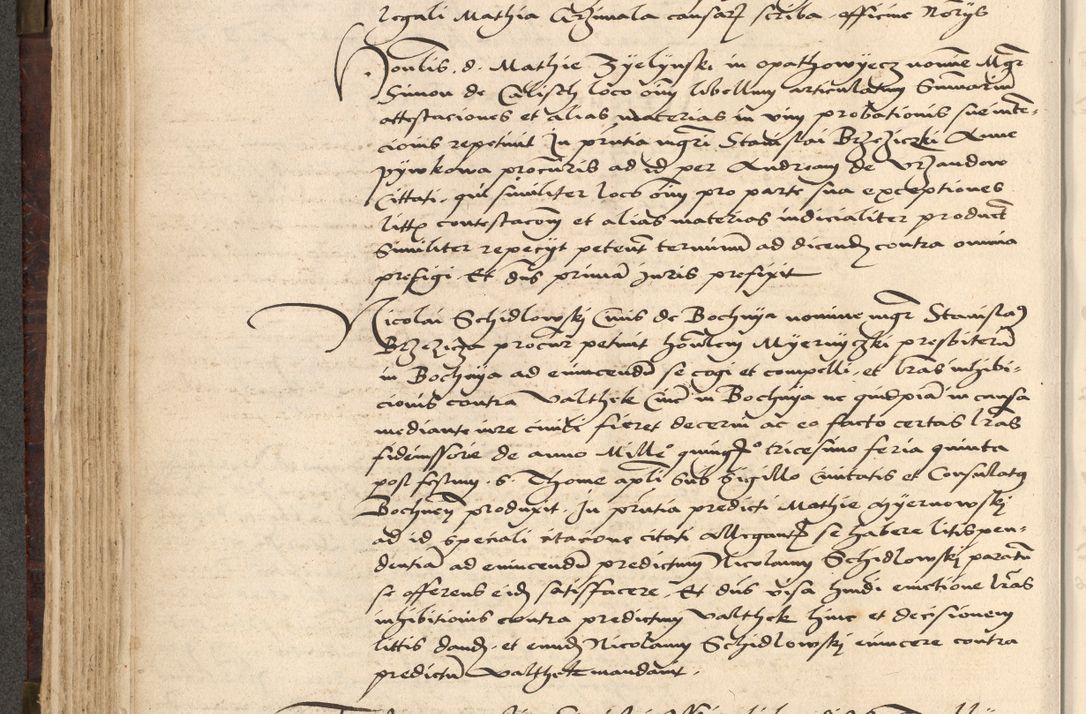 regali Mathia Grzimala causarum scriba officine Notarys
Honorabilis d. Mathie Zyelynski in opathowyecz nomine Mgr
Simon de Calisch loco omnium libellum articulatum Summarium
attestaciones et alias materias in vim probationis sue inten-
cionis repetiit In presentia mgri Stanislai Brzeziczki Anne
pywkowa procuris ad id per Andream de Vrzandow
Cittati, qui similiter loco omnium pro parte sua exceptiones
littis contestacom et alias materias iudicialiter product
Similiter repecyt petent terminum ad dicend contra omnia
prefigi Et dns primam iuris prefixit
Nicolai Schidlowskj Civis de Bochnya nomine mgr Stanislaus
Brzezicza procur petiit honorabilem Myernyczki presbiterum
in Bochnya ad evincendum se cogi et compelli, et lras inhibi-
cionis contra Valthek Civem in Bochnya ne quidpiam in causa
mediante iure civili fieret decerni ac eo facto certas lras
fideiussorie de anno Millo quingmo tricesimo feria quinta
post festum S. Thome apli Sub Sigillo Civitatis et Consulatus
Bochnen produxit, In presentia predicti Mathie Myernowskj
ad id speciali citacione citati Allegantis se habere litispen-
dentiam ad evincendum predictum Nicolaum Schidlowskj paratum
se offerens eid satisfacere, Et dns visa hmdi evictione lras
inhibitionis contra predictum Valthek hinc et decisionem
littis dand, et eund Nicolaum Schidlowskj evincere contra
predictum Valthek mandavit.